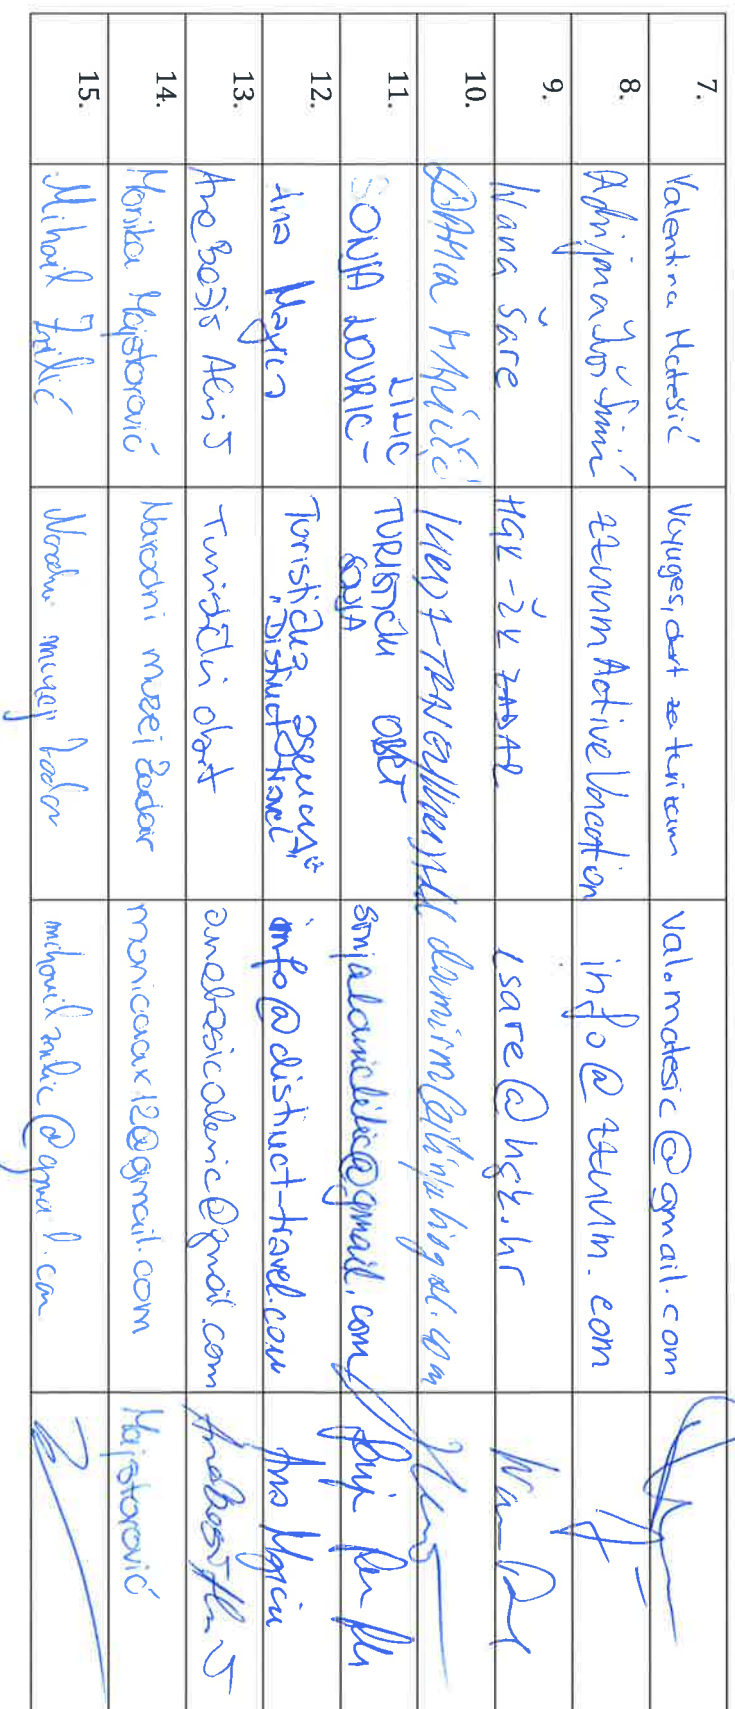 7. Valentina Matešić Voyages, obrt za turizam val.matesic@gmail.com
8. Adrijana Šimić zzuum Active Vacation info@zzuum.com
9. Ivana Šare HGK - ŽK ZADAR isare@hgk.hr
10.
11. SONJA LOVRIĆ - LILIĆ TURISTIČKI OBRT SONJA sonjalovriclilic@gmail.com
12. Ana Turistička agencija "Distinct travel" info@distinct-travel.com Ana
13. Ana Bašić Alerić Turistički obrt anabasicaleric@gmail.com
14. Monika Majstorović Narodni muzej Zadar monicaax12@gmail.com Majstorović
15. Mihovil Zrilić Narodni muzej Zadar mihovilzrilic@gmail.com